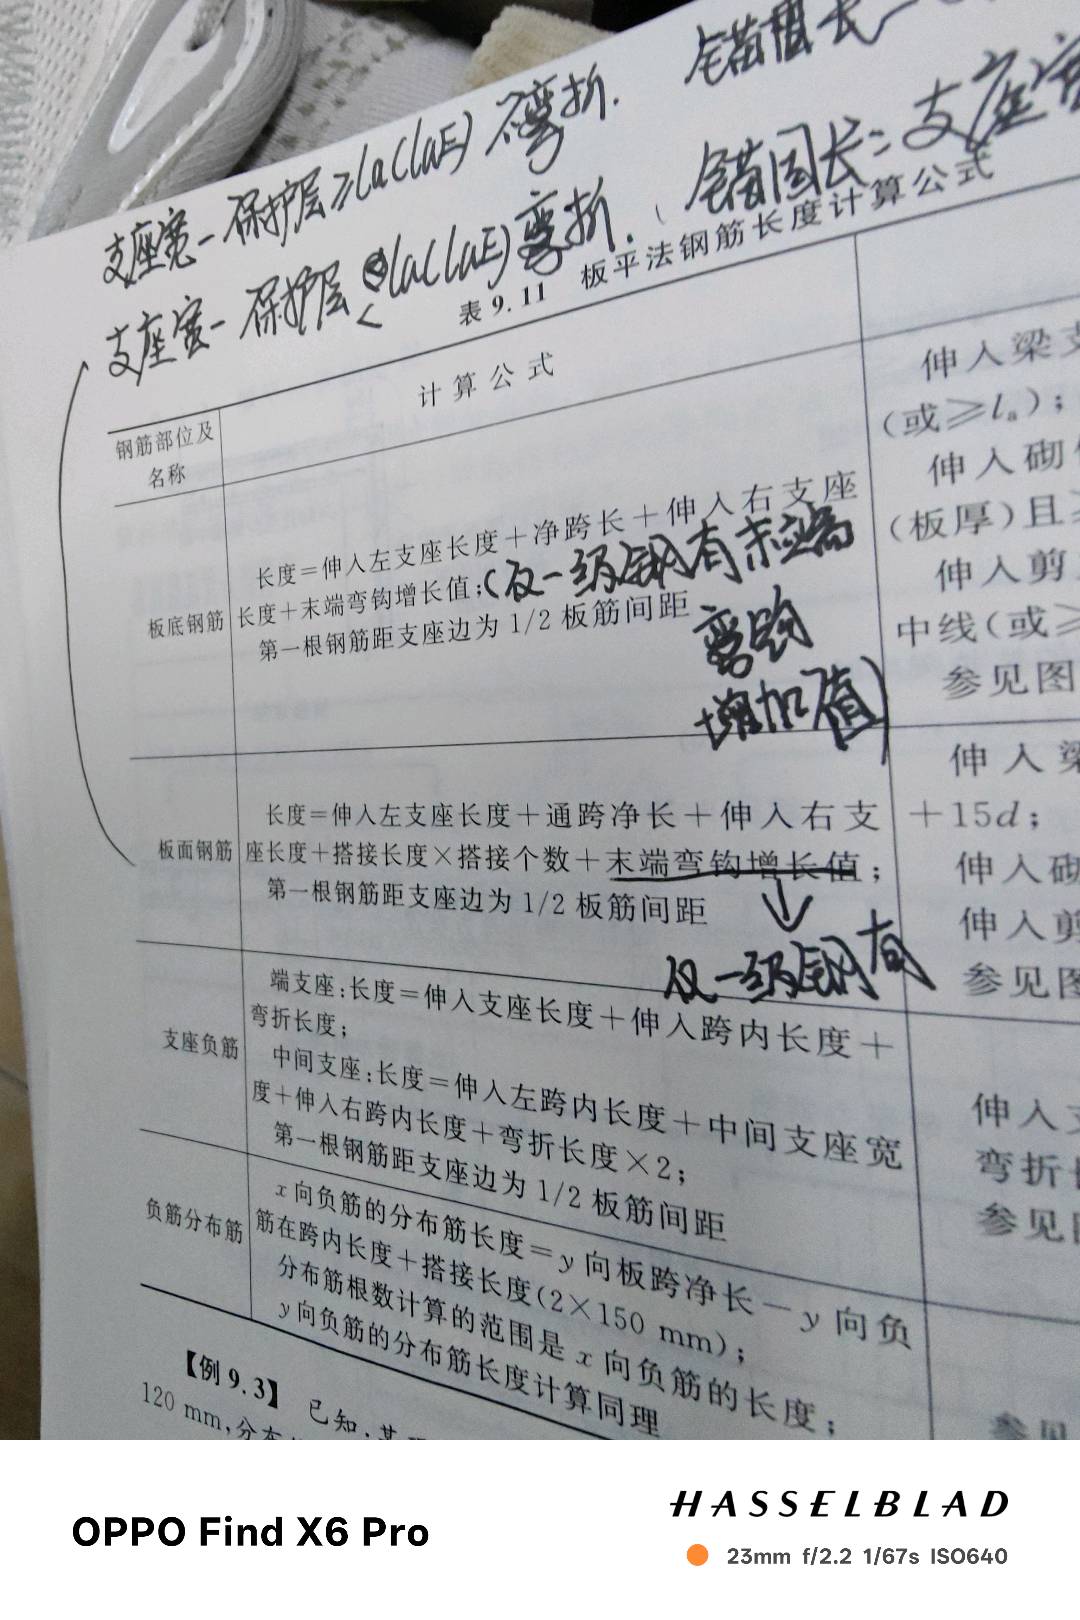 支座宽-保护层≥la(laE)不弯折. 锚固长
支座宽-保护层<la(laE)弯折. 锚固长=支座宽
表9.11 板平法钢筋长度计算公式
钢筋部位及
名称
计算公式
板底钢筋
长度=伸入左支座长度+净跨长+伸入右支座
长度+末端弯钩增长值;(仅一级钢有末端
弯钩
增加值)
第一根钢筋距支座边为1/2板筋间距
伸入梁支
(或≥la);
伸入砌
(板厚)且≥
伸入剪
中线(或≥
参见图
板面钢筋
长度=伸入左支座长度+通跨净长+伸入右支
座长度+搭接长度×搭接个数+末端弯钩增长值;
第一根钢筋距支座边为1/2板筋间距
仅一级钢有
伸入梁
+15d;
伸入砌
伸入剪
参见图
支座负筋
端支座:长度=伸入支座长度+伸入跨内长度+
弯折长度;
中间支座:长度=伸入左跨内长度+中间支座宽
度+伸入右跨内长度+弯折长度×2;
第一根钢筋距支座边为1/2板筋间距
伸入支
弯折长
参见图
负筋分布筋
x向负筋的分布筋长度=y向板跨净长-y向负
筋在跨内长度+搭接长度(2×150 mm);
分布筋根数计算的范围是x向负筋的长度;
y向负筋的分布筋长度计算同理
参见
【例9.3】 已知:某
120 mm,分布
OPPO Find X6 Pro
HASSELBLAD
23mm f/2.2 1/67s ISO640